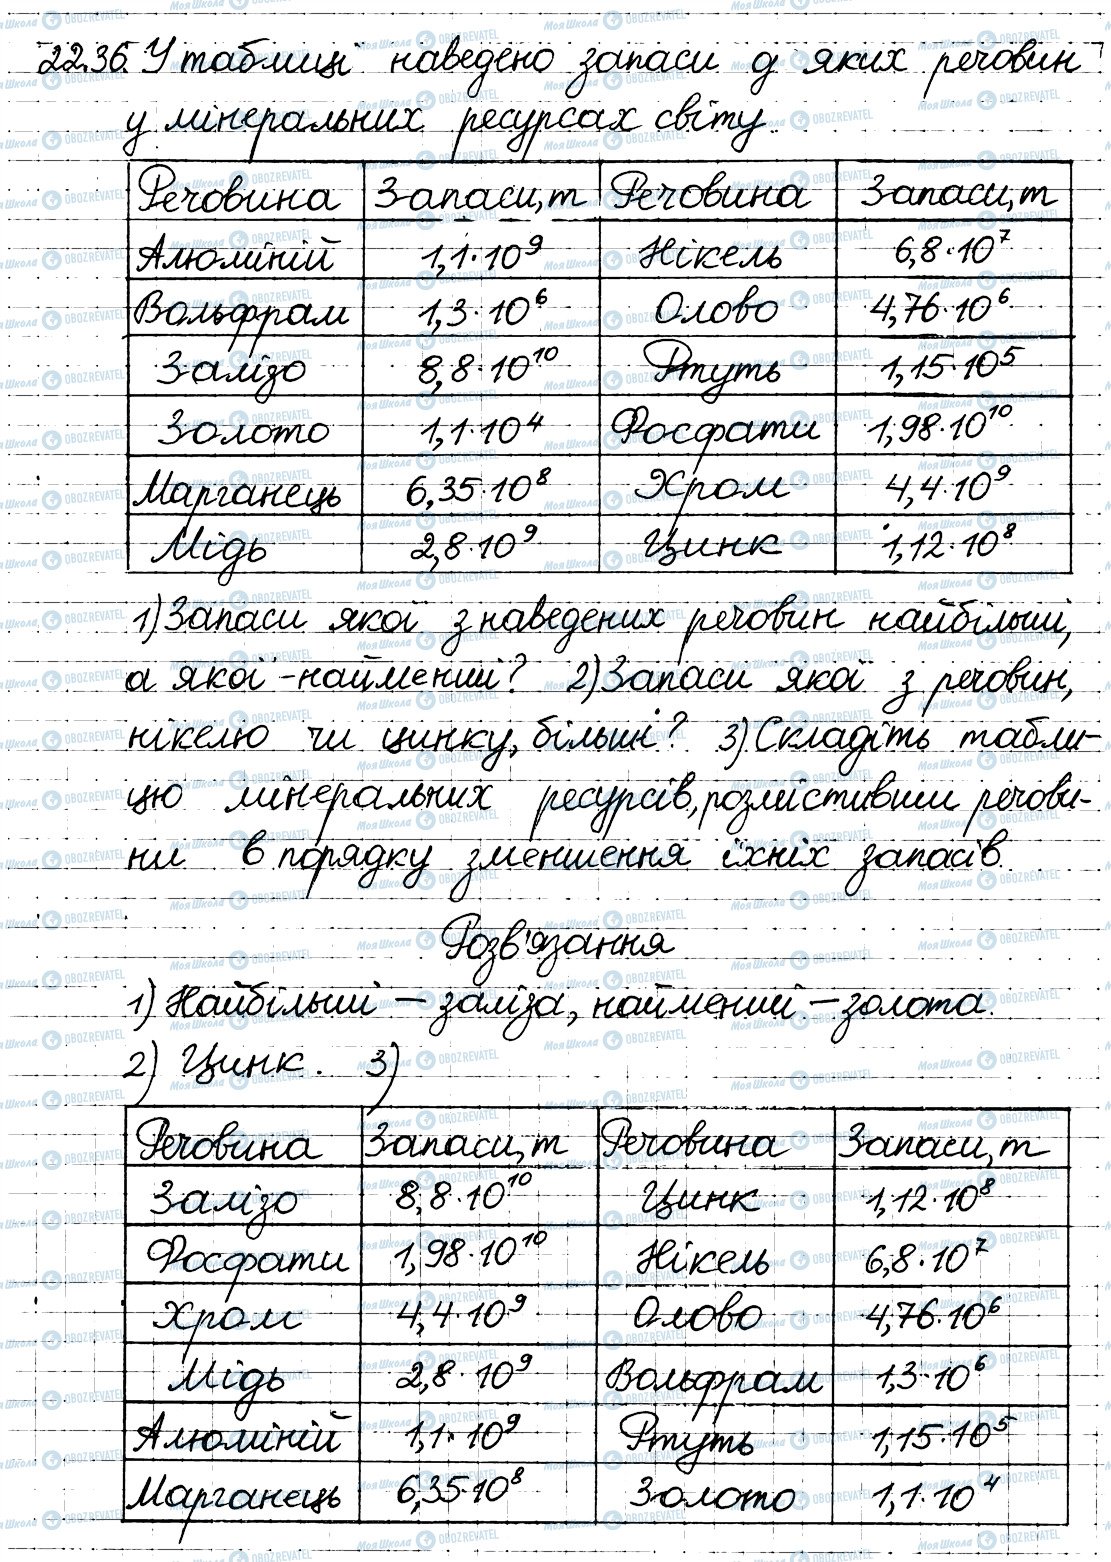 22.36. У таблиці наведено запаси д яких речовин
у мінеральних ресурсах світу.
Речовина Запаси, т Речовина Запаси, т
Алюміній 1,1·10⁹ Нікель 6,8·10⁷
Вольфрам 1,3·10⁶ Олово 4,76·10⁶
Залізо 8,8·10¹⁰ Ртуть 1,15·10⁵
Золото 1,1·10⁴ Фосфати 1,98·10¹⁰
Марганець 6,35·10⁸ Хром 4,4·10⁹
Мідь 2,8·10⁹ Цинк 1,12·10⁸
1) Запаси якої з наведених речовин найбільші,
а якої - найменші? 2) Запаси якої з речовин,
нікелю чи цинку, більші? 3) Складіть табли-
цю мінеральних ресурсів, розмістивши речови-
ни в порядку зменшення їхніх запасів.
Розв'язання
1) Найбільші – заліза, найменші – золота.
2) Цинк. 3)
Речовина Запаси, т Речовина Запаси, т
Залізо 8,8·10¹⁰ Цинк 1,12·10⁸
Фосфати 1,98·10¹⁰ Нікель 6,8·10⁷
Хром 4,4·10⁹ Олово 4,76·10⁶
Мідь 2,8·10⁹ Вольфрам 1,3·10⁶
Алюміній 1,1·10⁹ Ртуть 1,15·10⁵
Марганець 6,35·10⁸ Золото 1,1·10⁴